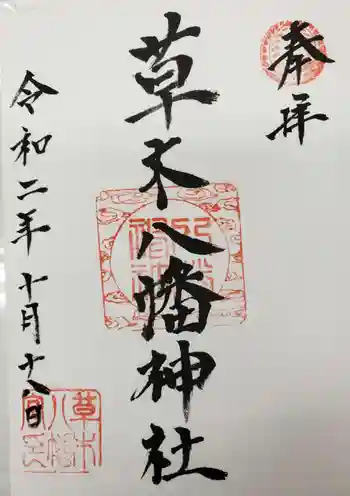 奉拝
草木八幡神社
令和二年十月十八日
草木
八幡